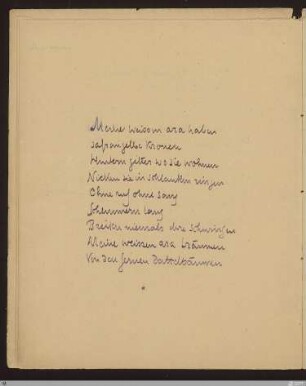 Meine weissen ara haben
safrangelbe Kronen
Hinterm gitter wo sie wohnen
Nicken sie in schlanken ringen
Ohne ruf ohne sang
Schlummern lang
Breiten niemals ihre schwingen
Meine weissen ara träumen
Von den fernen dattelbäumen